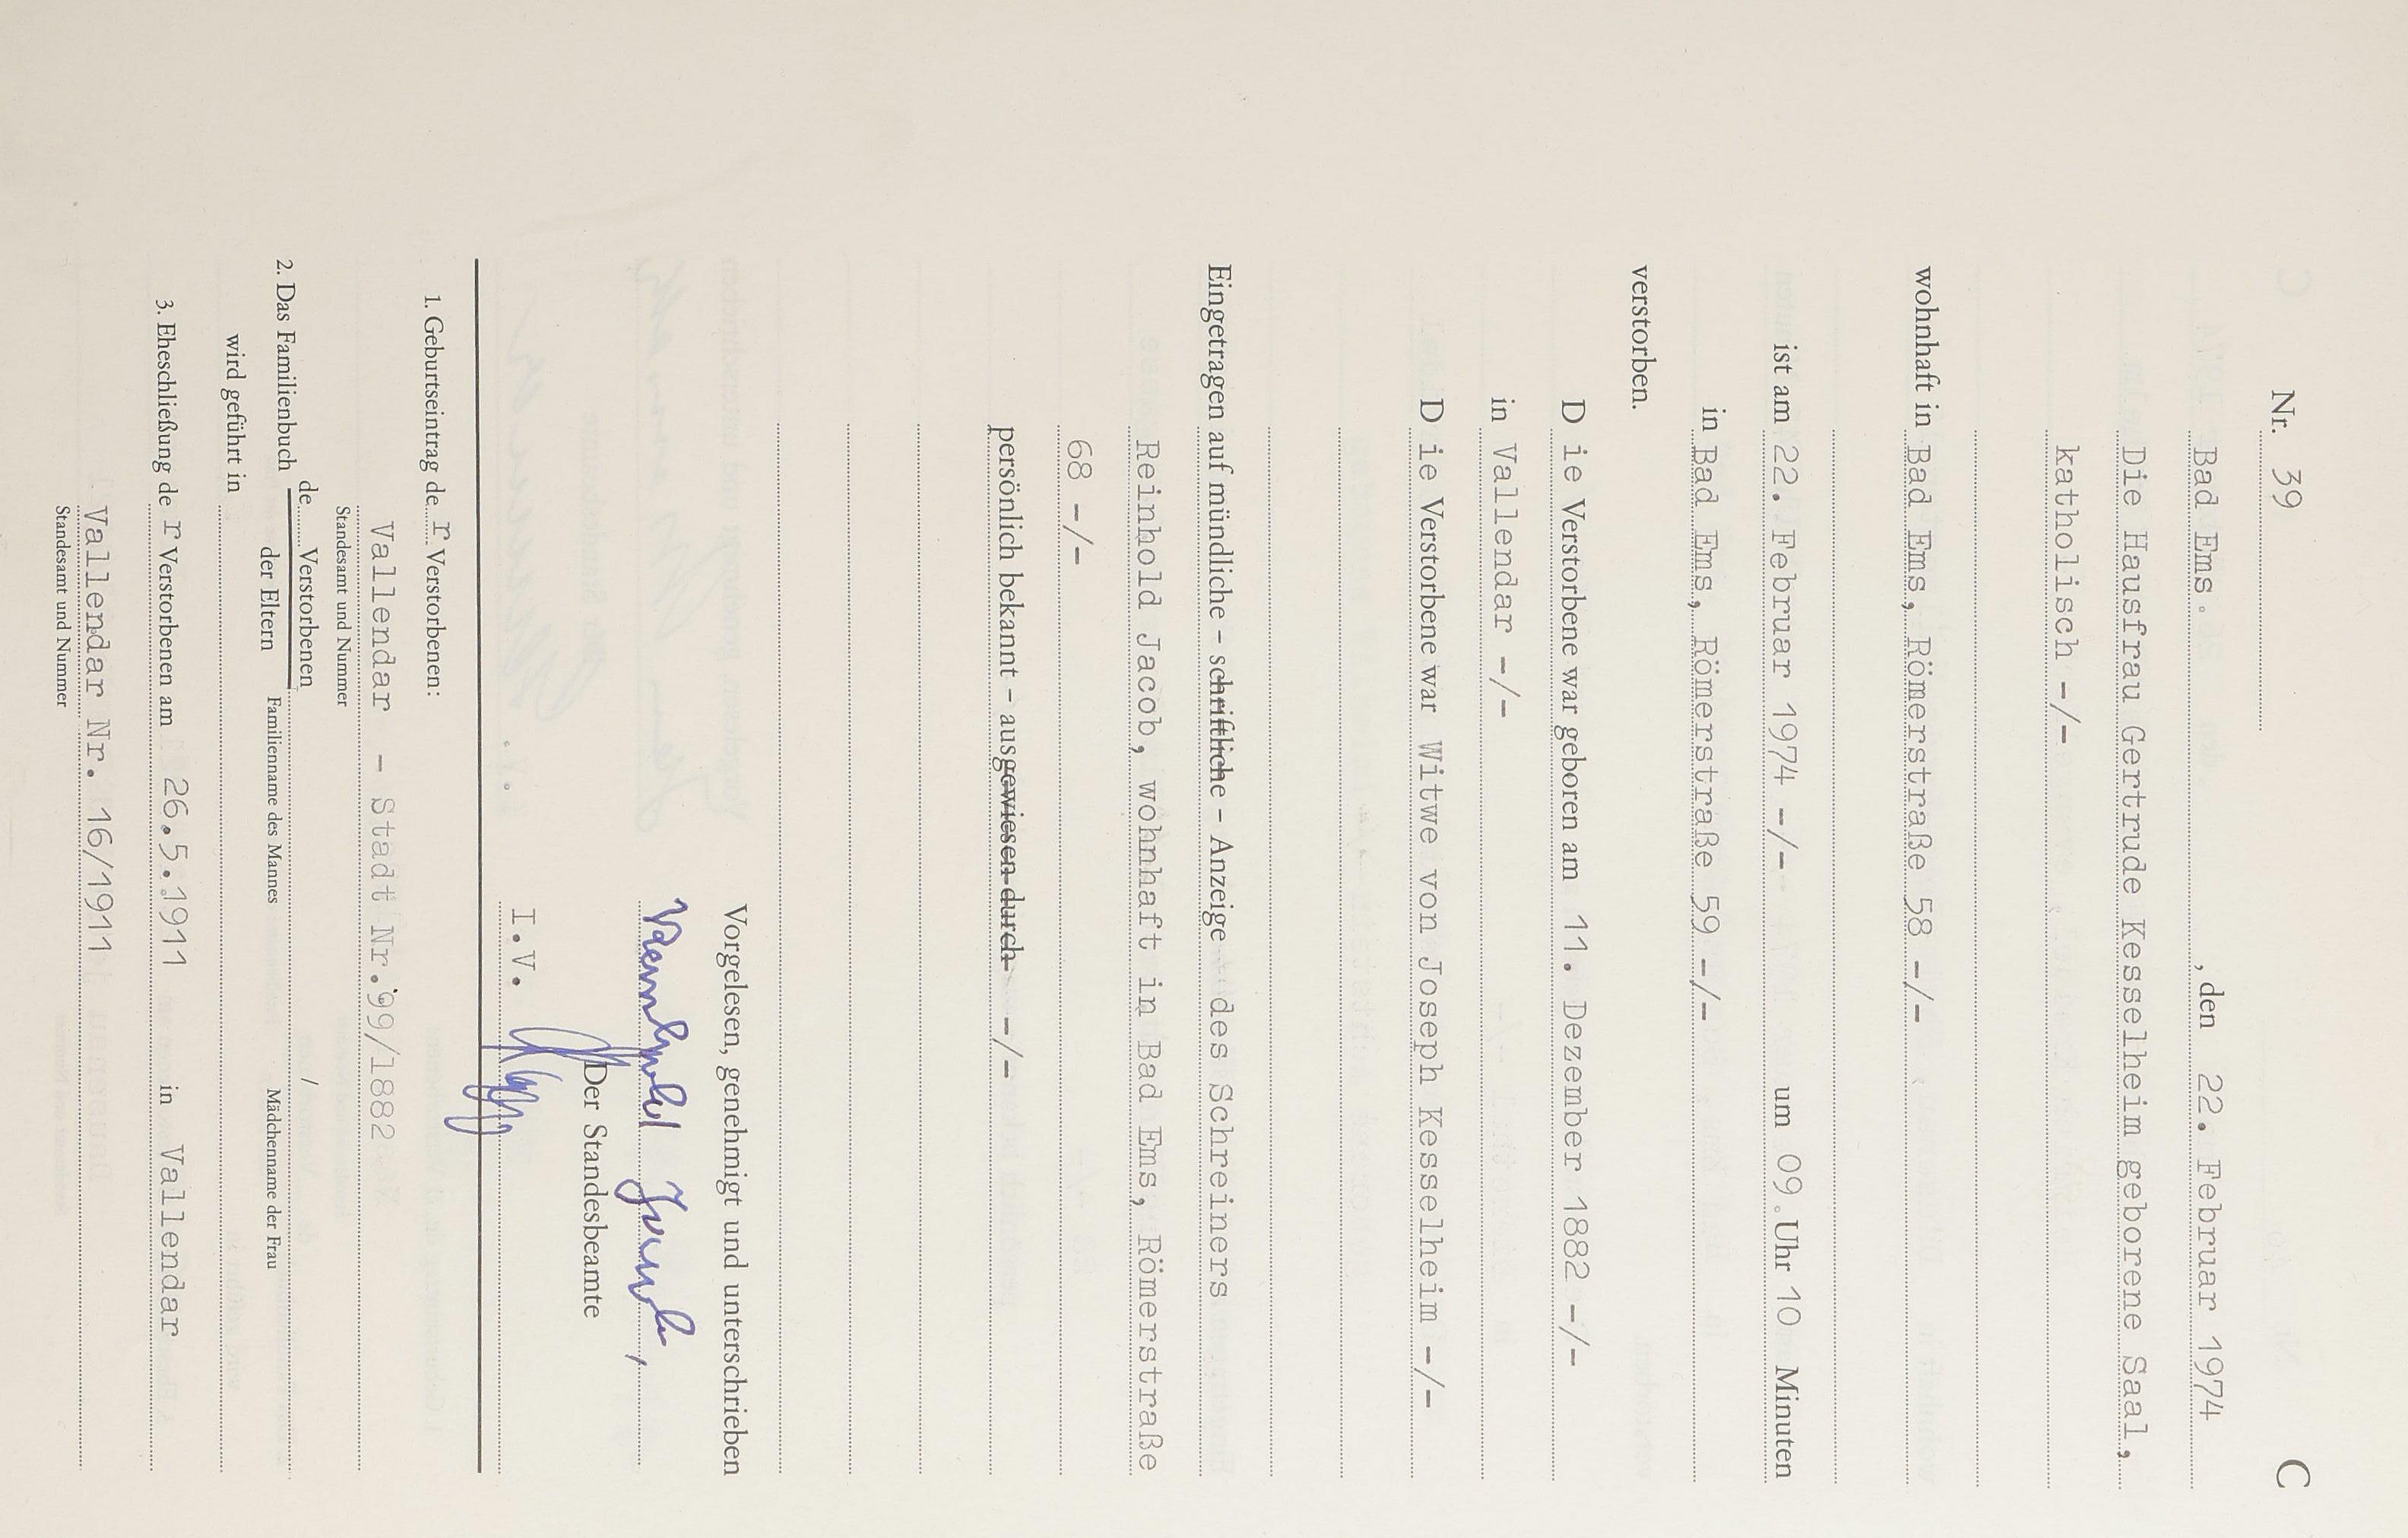 Nr. 39 C
Bad Ems , den 22. Februar 1974
Die Hausfrau Gertrude Kesselheim geborene Saal,
katholisch -/-
wohnhaft in Bad Ems, Römerstraße 58 -/-
ist am 22. Februar 1974 -/- um 09 Uhr 10 Minuten
in Bad Ems, Römerstraße 59 -/-
verstorben.
D ie Verstorbene war geboren am 11. Dezember 1882 -/-
in Vallendar -/-
D ie Verstorbene war Witwe von Joseph Kesselheim -/-
Eingetragen auf mündliche – schriftliche – Anzeige des Schreiners
Reinhold Jacob, wohnhaft in Bad Ems, Römerstraße
68 -/-
persönlich bekannt – ausgewiesen durch -/-
Vorgelesen, genehmigt und unterschrieben
Der Standesbeamte
I.V.
1. Geburtseintrag de r Verstorbenen:
Vallendar - Stadt Nr. 99/1882
Standesamt und Nummer
2. Das Familienbuch de Verstorbenen /
der Eltern Familienname des Mannes Mädchenname der Frau
wird geführt in
3. Eheschließung de r Verstorbenen am 26.5.1911 in Vallendar
Vallendar Nr. 16/1911
Standesamt und Nummer